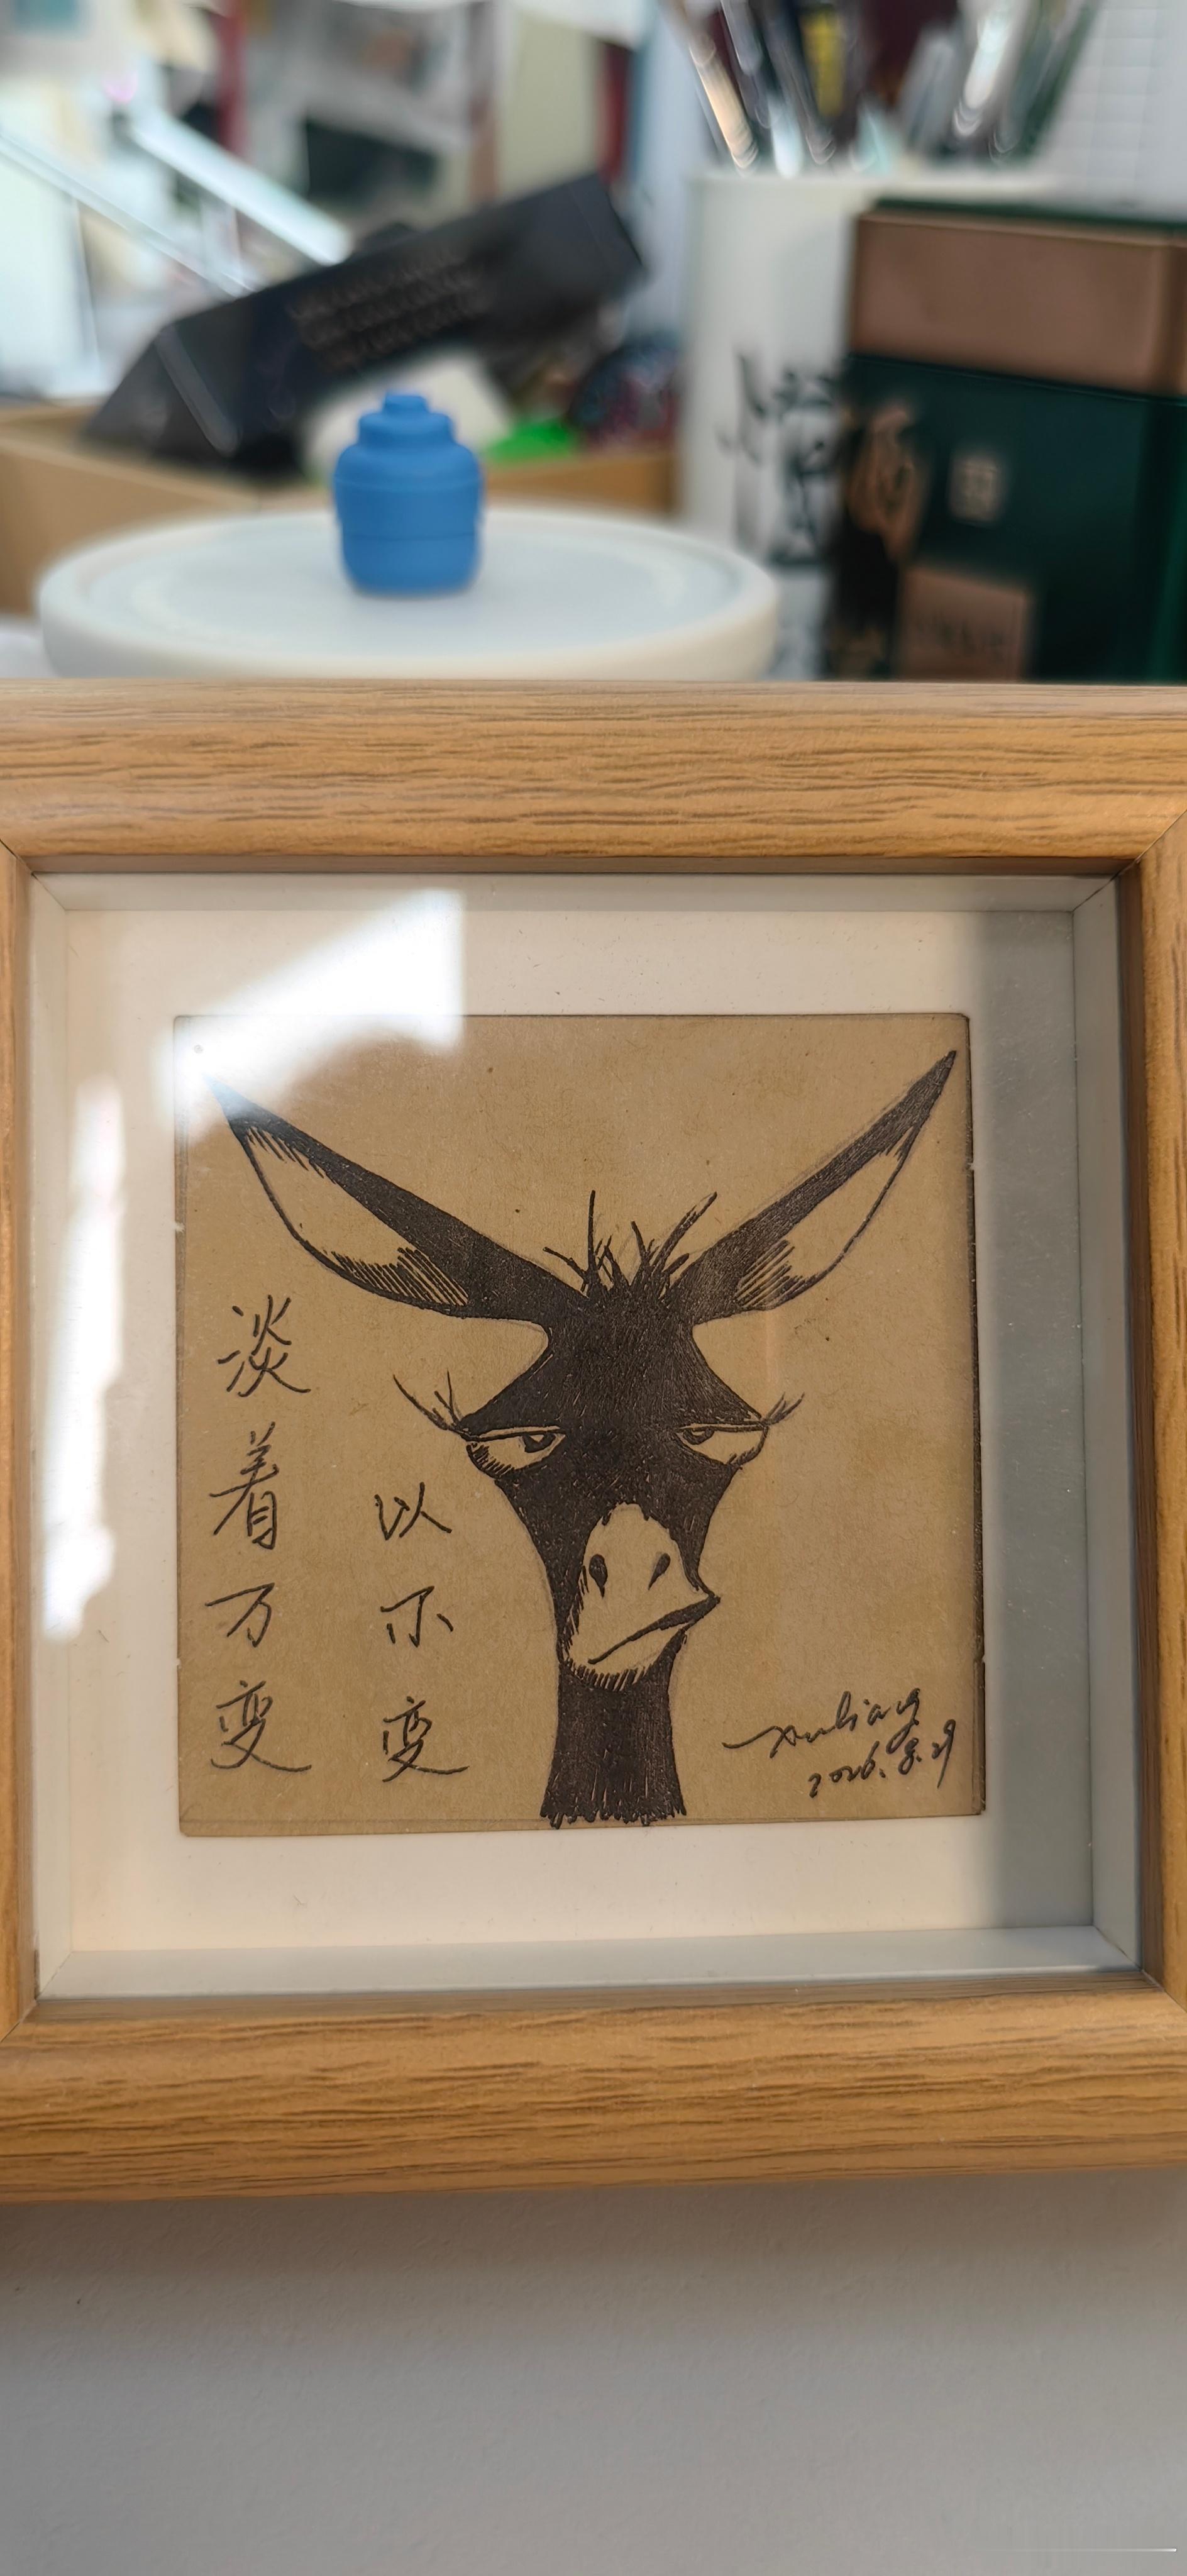 以不变
淡着万变
xuliang
2026.8.29